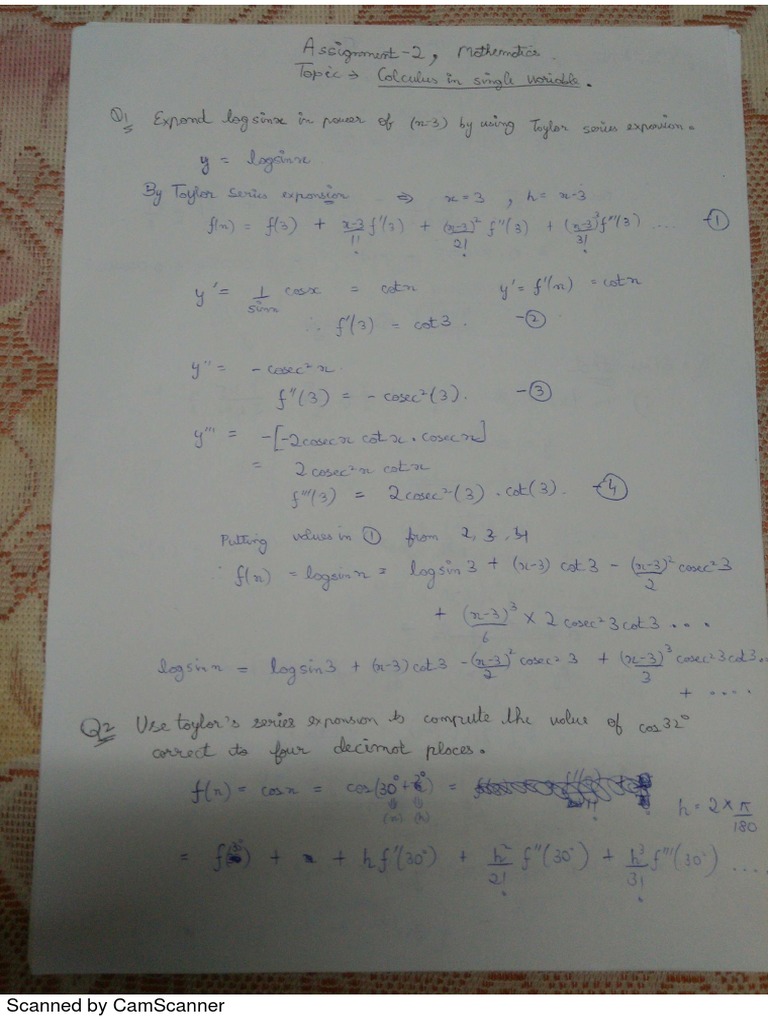 Assignment-2, Mathematics.
Topic → Calculus in single variable.
Q1 Expand log sinx in power of (x-3) by using Taylor series expansion.
y = logsinx
By Taylor series expansion ⇒ x=3 , h= x-3
f(x) = f(3) + x-3/1! f'(3) + (x-3)²/2! f''(3) + (x-3)³/3! f'''(3) .... -①
y' = 1/sinx cosx = cotx y' = f'(x) = cotx
∴ f'(3) = cot3. -②
y'' = -cosec²x.
f''(3) = - cosec²(3). -③
y''' = -[-2cosecx cotx . cosecx]
= 2 cosec²x cotx
f'''(3) = 2cosec²(3) . cot(3). -④
Putting values in ① from 2, 3, 4
f(x) = logsinx = logsin3 + (x-3) cot3 - (x-3)²/2 cosec²3
+ (x-3)³/6 × 2 cosec²3 cot3 ....
logsinx = logsin3 + (x-3)cot3 - (x-3)²/2 cosec²3 + (x-3)³/3 cosec²3 cot3..
+ ....
Q2 Use taylor's series expansion to compute the value of cos32°
correct to four decimal places.
f(x) = cosx = cos(30°+2°) = h = 2 × π/180
(x) (h)
= f(30°) + + hf'(30°) + h²/2! f''(30°) + h³/3! f'''(30°) ....
Scanned by CamScanner